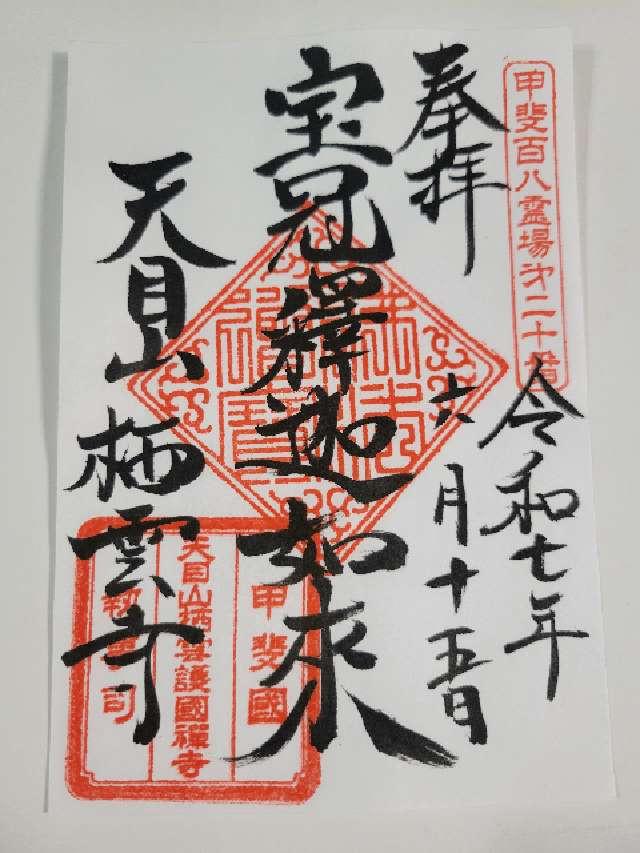 甲斐百八霊場第二十番
奉拝
令和七年
六月十五日
宝冠釋迦如来
天目山栖雲寺
佛法僧寳
甲斐國
天目山栖雲護國禅寺
執事司